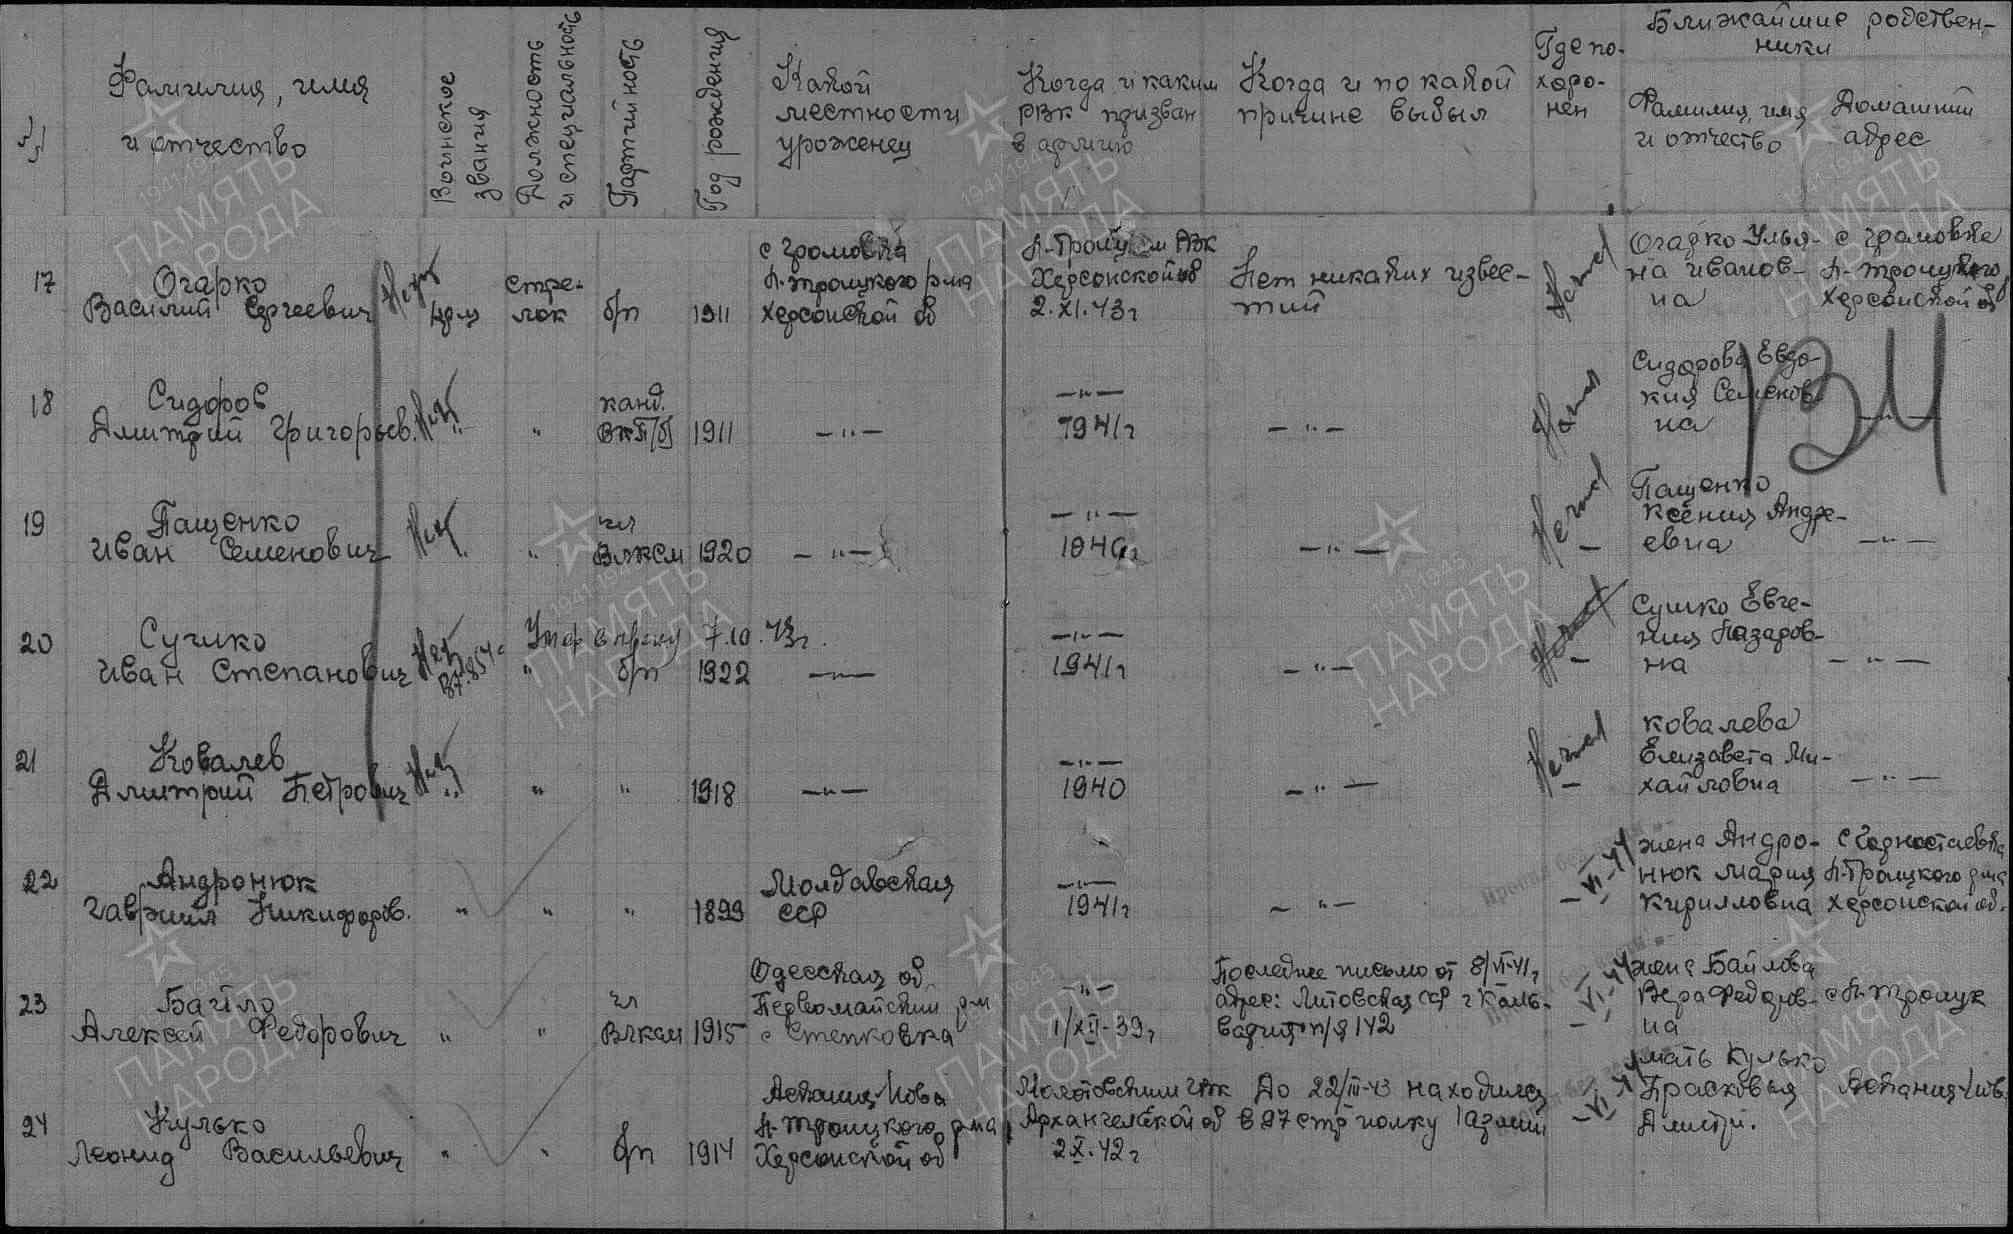 Фамилия, имя
и отчество
Воинское
звания
Должность
и специальность
Партийность
Год рождения
Какой
местности
уроженец
Когда и каким
РВК призван
в армию
Когда и по какой
причине выбыл
Где по-
хоро-
нен
Ближайшие родствен-
ники
Фамилия, имя
и отчество
Домашний
адрес
17
Огарко
Василий Сергеевич
стре-
лок
б/п
1911
с Громовка
Н-Троицкого р-на
Херсонской об
Херсонской об
2.XI.43 г
Нет никаких извес-
тий
Огарко Улья-
на Иванов-
на
с Громовке
Н-Троицкого
Херсонской об
18
Сидоров
Дмитрий Григорьев.
"
канд.
ВКП/б/
1911
—"—
—"—
1941 г
—"—
Сидорова Евдо-
кия Семенов
на
—"—
134
19
Пащенко
Иван Семенович
"
чл
ВЛКСМ
1920
—"—
—"—
1940 г
—"—
Пащенко
Ксения Андре-
евна
—"—
20
Сушко
Иван Степанович
7.10.43 г.
"
б/п
1922
—"—
—"—
1941 г
—"—
Сушко Евге-
ния Лазаров-
на
—"—
21
Ковалев
Дмитрий Петрович
"
"
1918
—"—
—"—
1940
—"—
Ковалева
Елизавета Ми-
хайловна
—"—
22
Андронюк
Гавриил Никифоров.
"
"
"
1899
Молдавская
ССР
—"—
1941 г
—"—
—VI-44
жена Андро-
нюк Мария
Кирилловна
с Горностаевка
Н-Троицкого р-на
Херсонской об.
23
Байло
Алексей Федорович
"
"
чл
ВЛКСМ
1915
Одесская об
Первомайский р-н
с Степковка
—"—
1/XII-39 г
Последнее письмо от 8/VI-41 г
адрес: Литовская ССР г Каль-
вария п/я 142
—VI-44
жена Байлова
Вера Федоров-
на
с Н-Троицк
24
Кулько
Леонид Васильевич
"
"
б/п
1914
Аскания-Нова
Н-Троицкого р-на
Херсонской об
Молотовским ГВК
Архангельской об
2.X.42 г
До 22/III-43 находился
в 97 стр полку
—VI-44
мать Кулько
Прасковья
Дмитр.
Аскания-Нов.
1941-1945
ПАМЯТЬ
НАРОДА